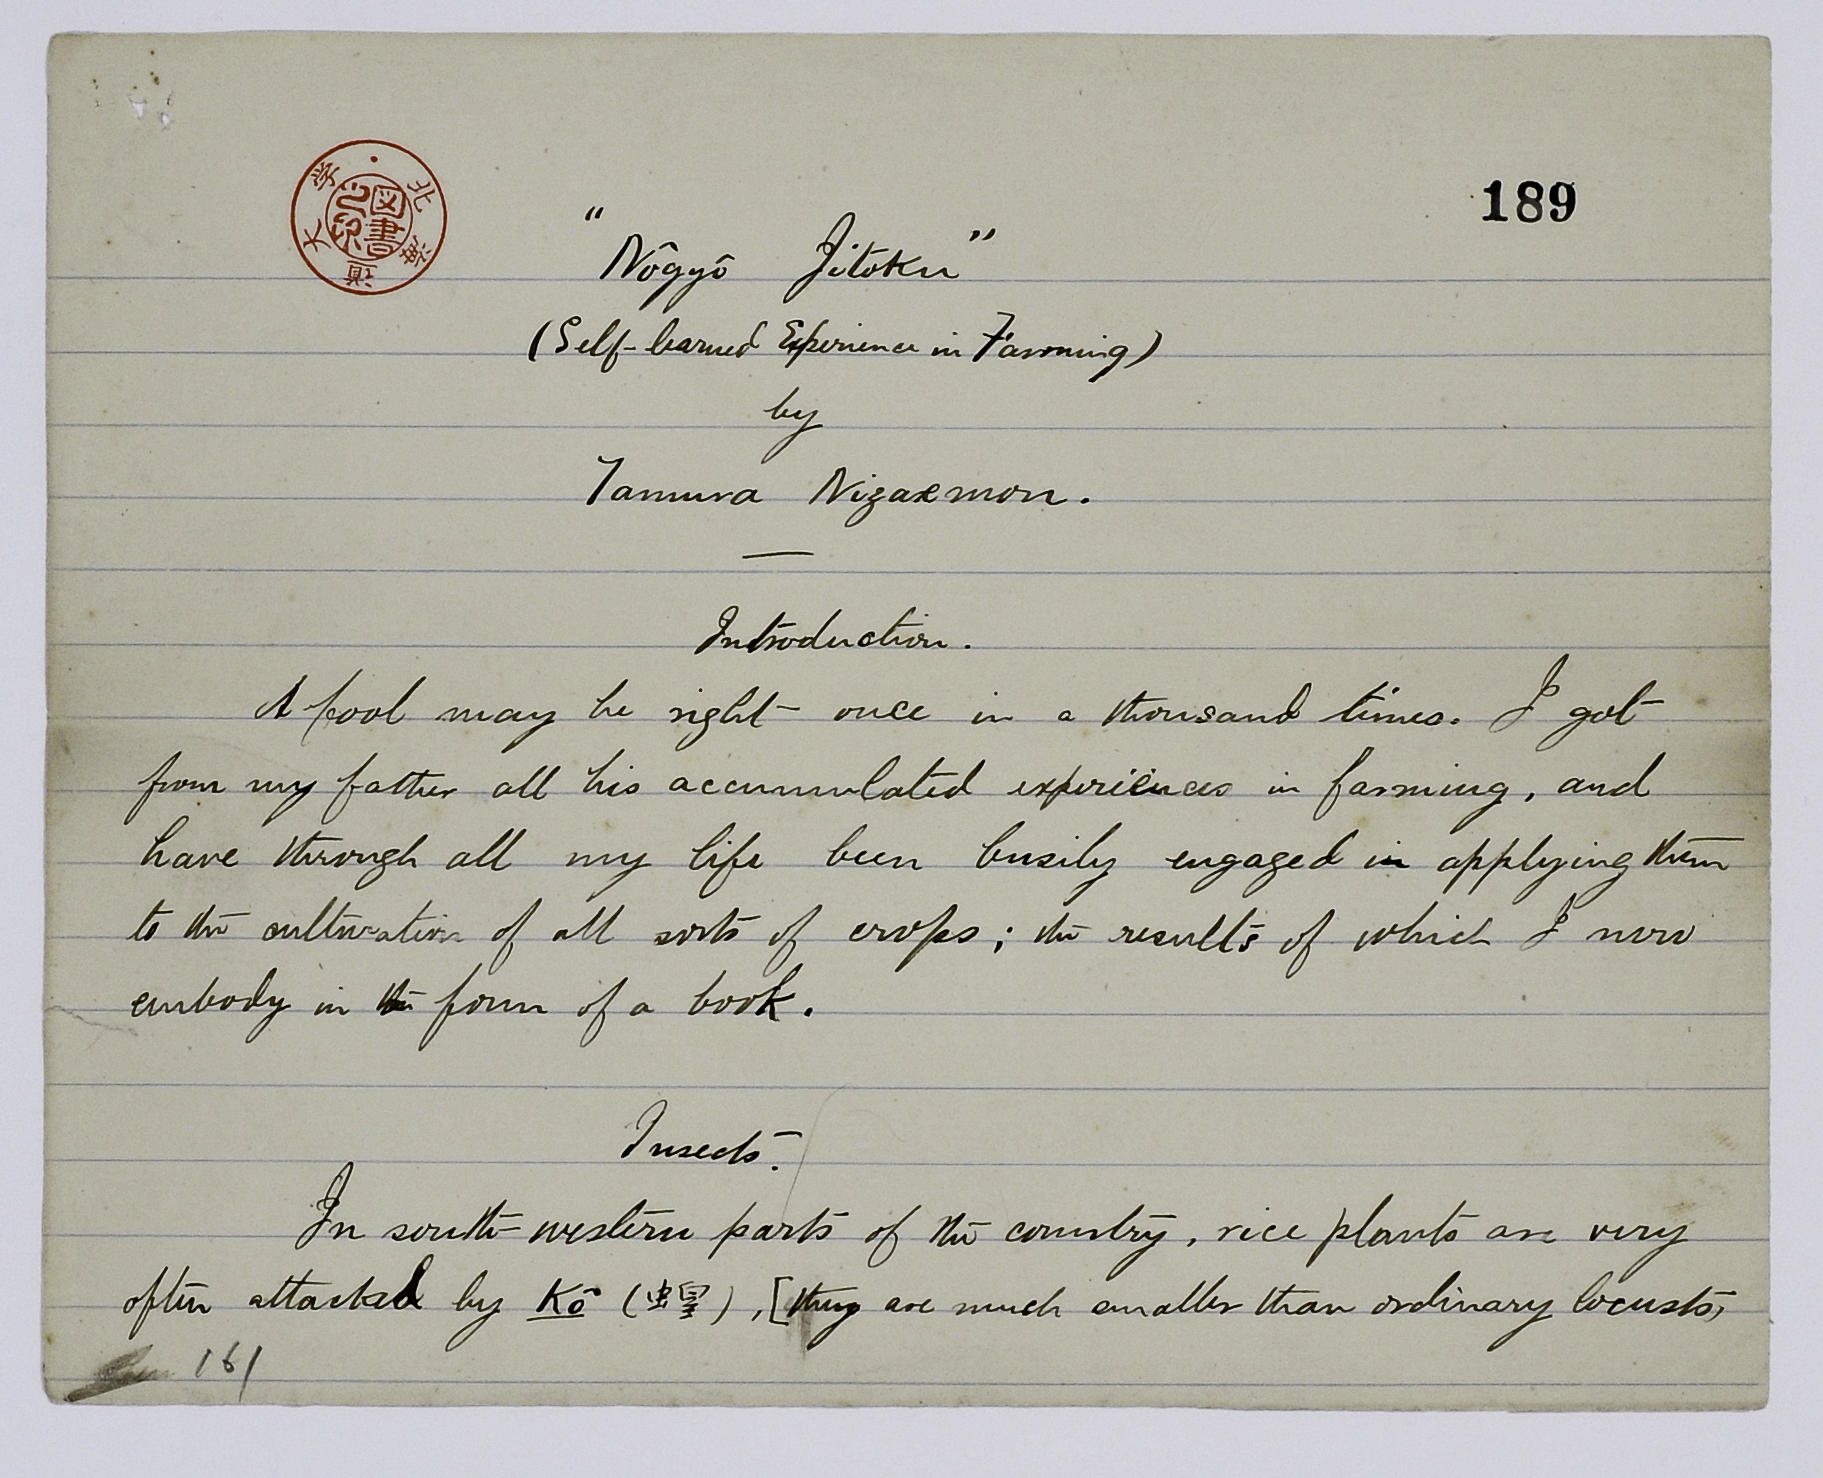 189
北海道大学
図書之印
"Nôgyô Jitoku"
(Self-learned Experience in Farming)
by
Tamura Nizaemon.
Introduction.
A fool may be right once in a thousand times. I got
from my father all his accumulated experiences in farming, and
have through all my life been busily engaged in applying them
to the cultivation of all sorts of crops; the results of which I now
embody in the form of a book.
Insects.
In south-western parts of the country, rice plants are very
often attacked by Kô (蝗), [they are much smaller than ordinary locusts,
161